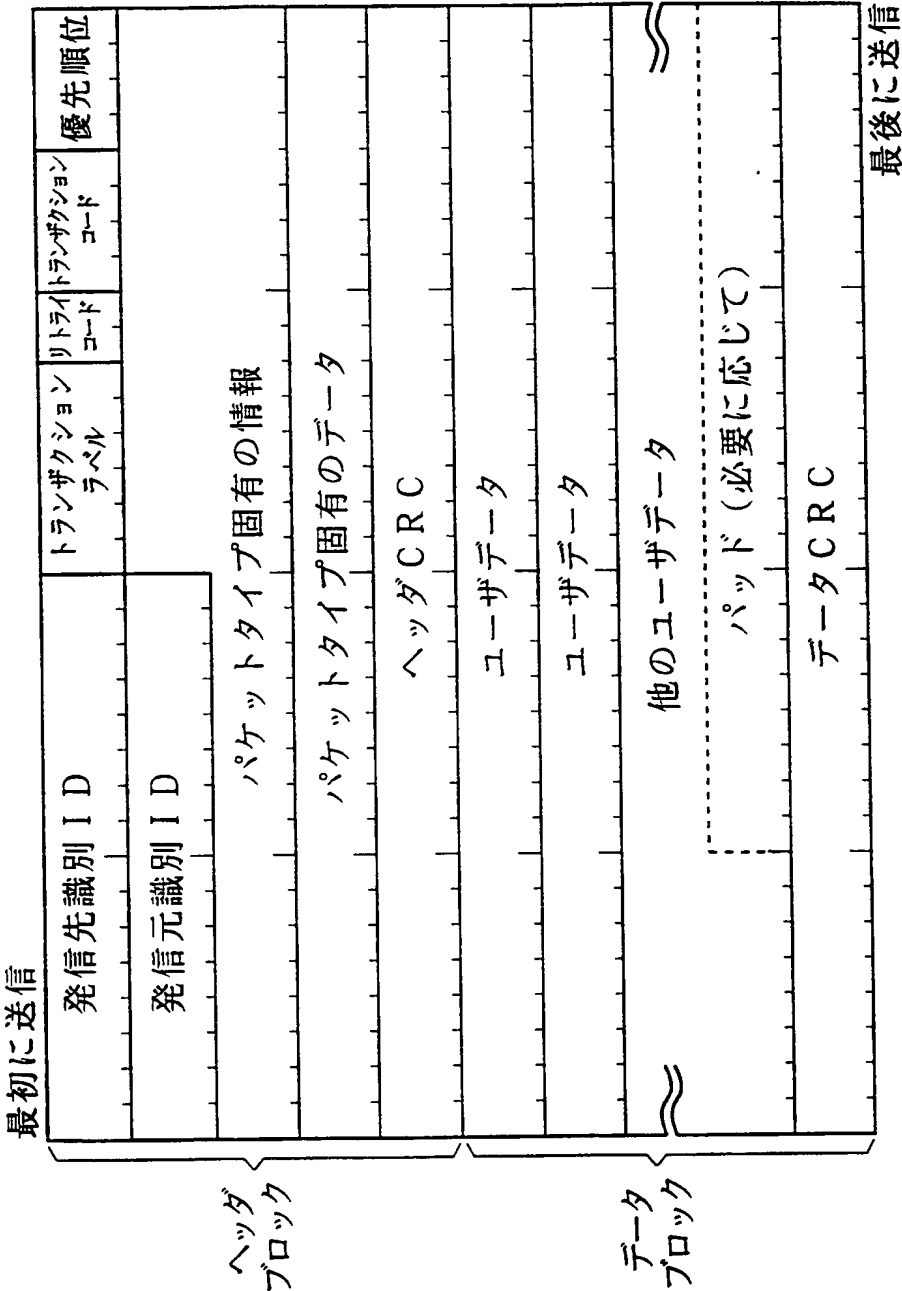 最初に送信
発信先識別ID
トランザクション
ラベル
リトライ
コード
トランザクション
コード
優先順位
発信元識別ID
パケットタイプ固有の情報
パケットタイプ固有のデータ
ヘッダCRC
ヘッダ
ブロック
ユーザデータ
ユーザデータ
他のユーザデータ
パッド(必要に応じて)
データCRC
データ
ブロック
最後に送信